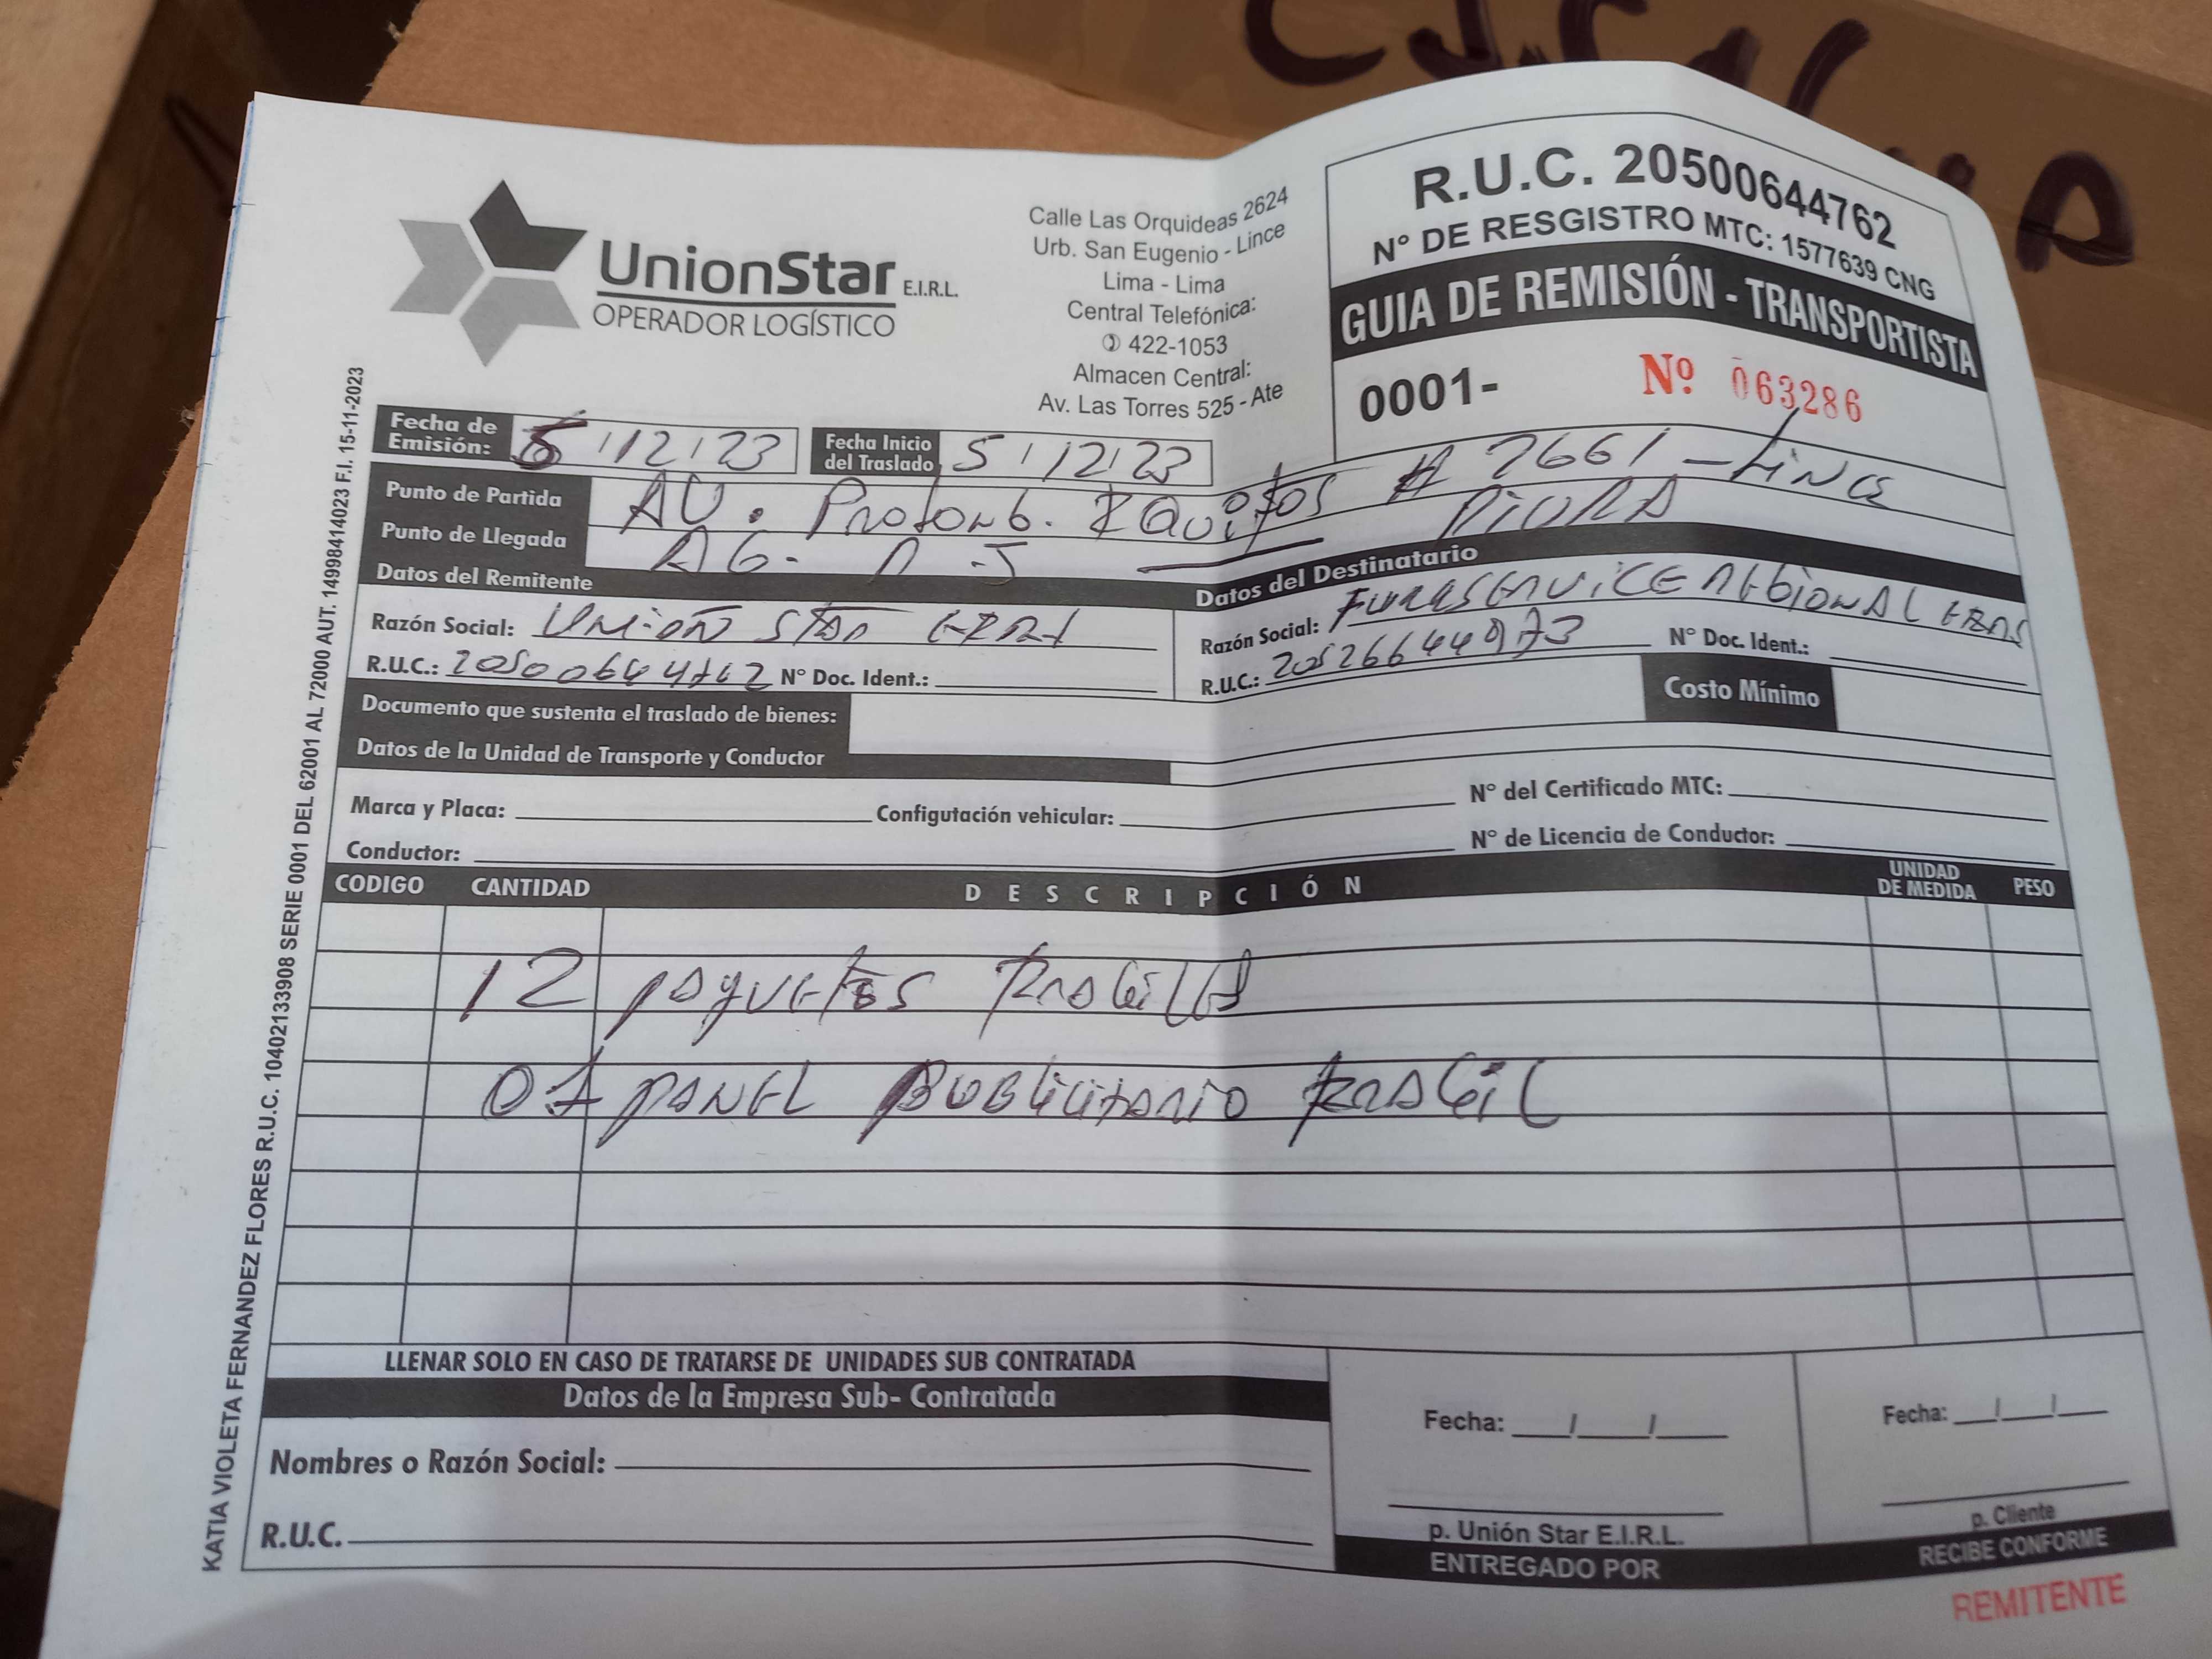 UnionStar E.I.R.L.
OPERADOR LOGÍSTICO
Calle Las Orquideas 2624
Urb. San Eugenio - Lince
Lima - Lima
Central Telefónica:
422-1053
Almacen Central:
Av. Las Torres 525 - Ate
R.U.C. 20500644762
N° DE RESGISTRO MTC: 1577639 CNG
GUIA DE REMISIÓN - TRANSPORTISTA
0001- Nº 063286
Fecha de Emisión: 5/12/23 Fecha Inicio del Traslado 5/12/23
Punto de Partida AV. Prolong. Iquitos # 2661 - Lince
Punto de Llegada AG. PIURA
Datos del Remitente Datos del Destinatario
Razón Social: Union Star EIRL Razón Social: SERVICE REGIONAL
R.U.C.: 20500644762 N° Doc. Ident.: R.U.C.: 20526644973 N° Doc. Ident.:
Documento que sustenta el traslado de bienes: Costo Mínimo
Datos de la Unidad de Transporte y Conductor
Marca y Placa: Configutación vehicular: N° del Certificado MTC:
Conductor: N° de Licencia de Conductor:
CODIGO CANTIDAD DESCRIPCIÓN UNIDAD DE MEDIDA PESO
12 paquetes
01 PANEL PUBLICITARIO FRAGIL
LLENAR SOLO EN CASO DE TRATARSE DE UNIDADES SUB CONTRATADA
Datos de la Empresa Sub- Contratada
Nombres o Razón Social:
R.U.C.
Fecha: / /
p. Unión Star E.I.R.L.
ENTREGADO POR
Fecha: / /
p. Cliente
RECIBE CONFORME
REMITENTE
KATIA VIOLETA FERNANDEZ FLORES R.U.C. 10402133908 SERIE 0001 DEL 62001 AL 72000 AUT. 14998414023 F.I. 15-11-2023